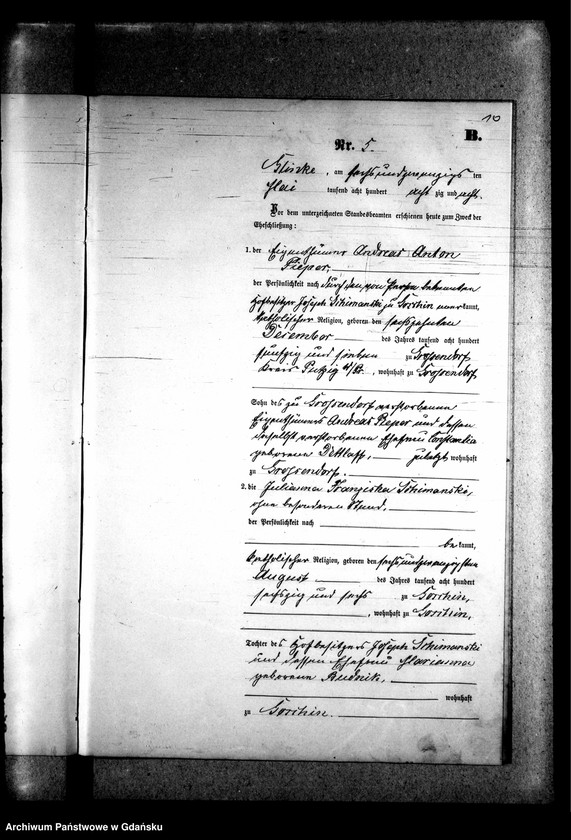 10
B.
Nr. 5.
am sechsundzwanzigsten
Mai tausend acht hundert achtzig und acht.
Vor dem unterzeichneten Standesbeamten erschienen heute zum Zweck der
Eheschließung:
1. der Eigenthümer Andreas Anton
Pieper,
der Persönlichkeit nach durch den von Person bekannten
Hofbesitzer Joseph Schimanski zu anerkannt,
katholischer Religion, geboren den sechszehnten
Dezember des Jahres tausend acht hundert
fünfzig und sieben zu Grossendorf
Kreis Putzig , wohnhaft zu Grossendorf,
Sohn des zu Grossendorf verstorbenen
Eigenthümers Andreas Pieper und dessen
daselbst verstorbenen Ehefrau Constantia
geborenen Dettlaff, zuletzt wohnhaft
zu Grossendorf.
2. die Julianna Franziska Schimanski,
ohne besonderen Stand,
der Persönlichkeit nach
bekannt,
katholischer Religion, geboren den sechsundzwanzigsten
August des Jahres tausend acht hundert
sechszig und sechs zu
, wohnhaft zu
Tochter des Hofbesitzers Joseph Schimanski
und dessen Ehefrau Marianna
geborene Rudnik,
wohnhaft
zu
Archiwum Państwowe w Gdańsku